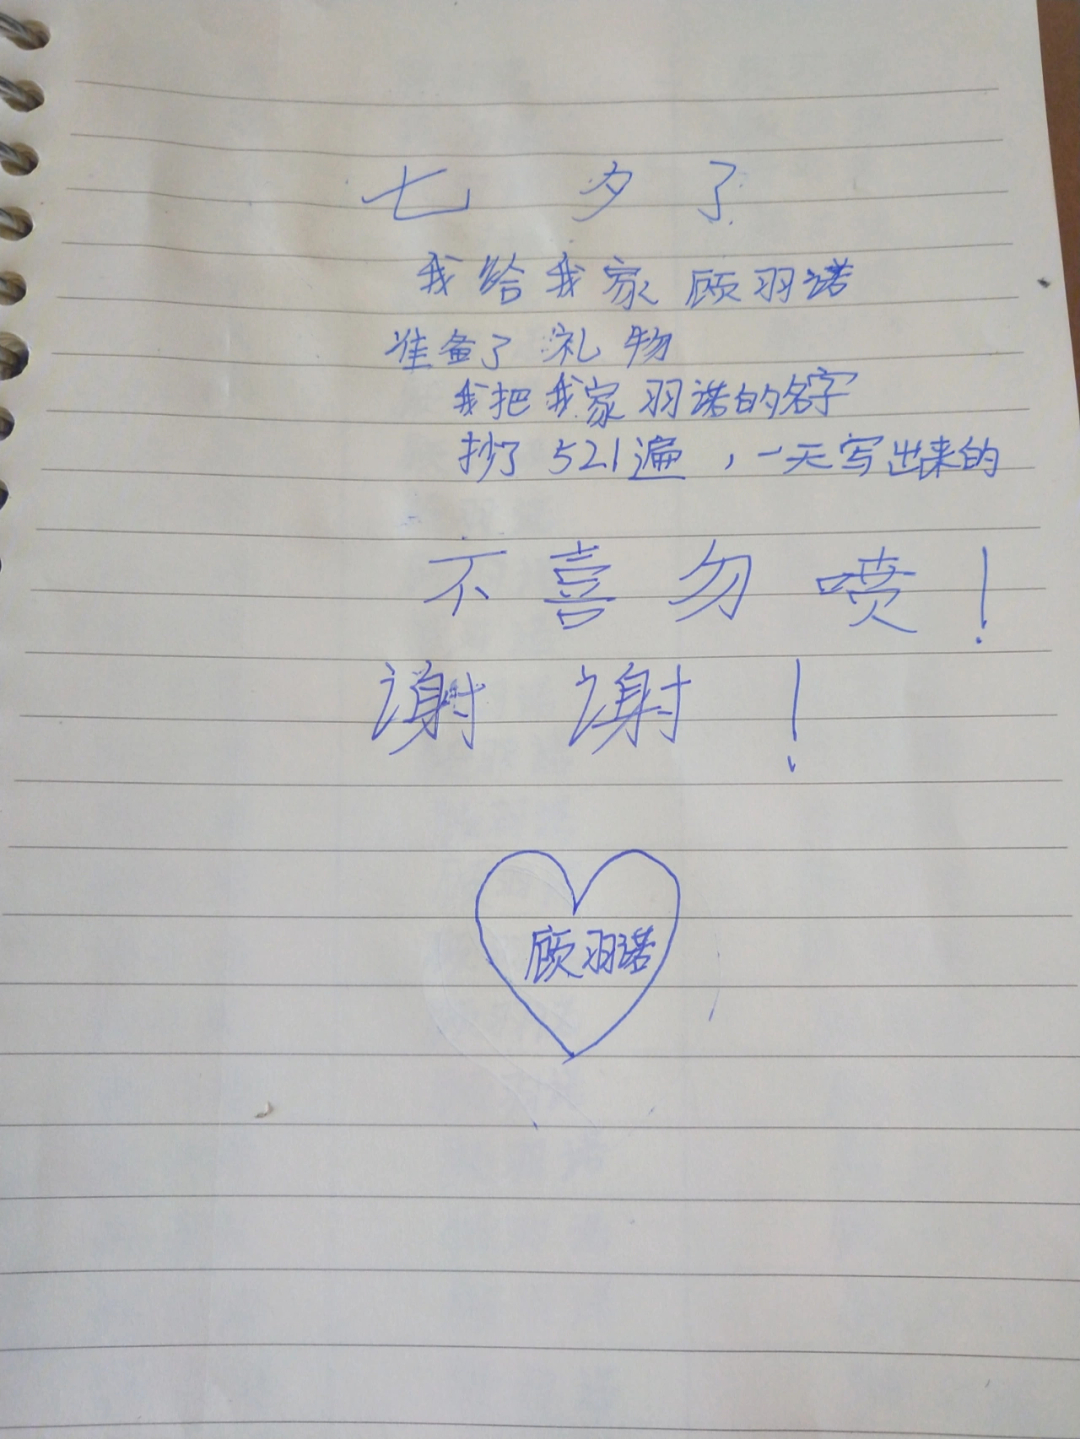 七夕了
我给我家顾羽诺
准备了礼物
我把我家羽诺的名字
抄了521遍，一天写出来的
不喜勿喷！
谢谢！
顾羽诺